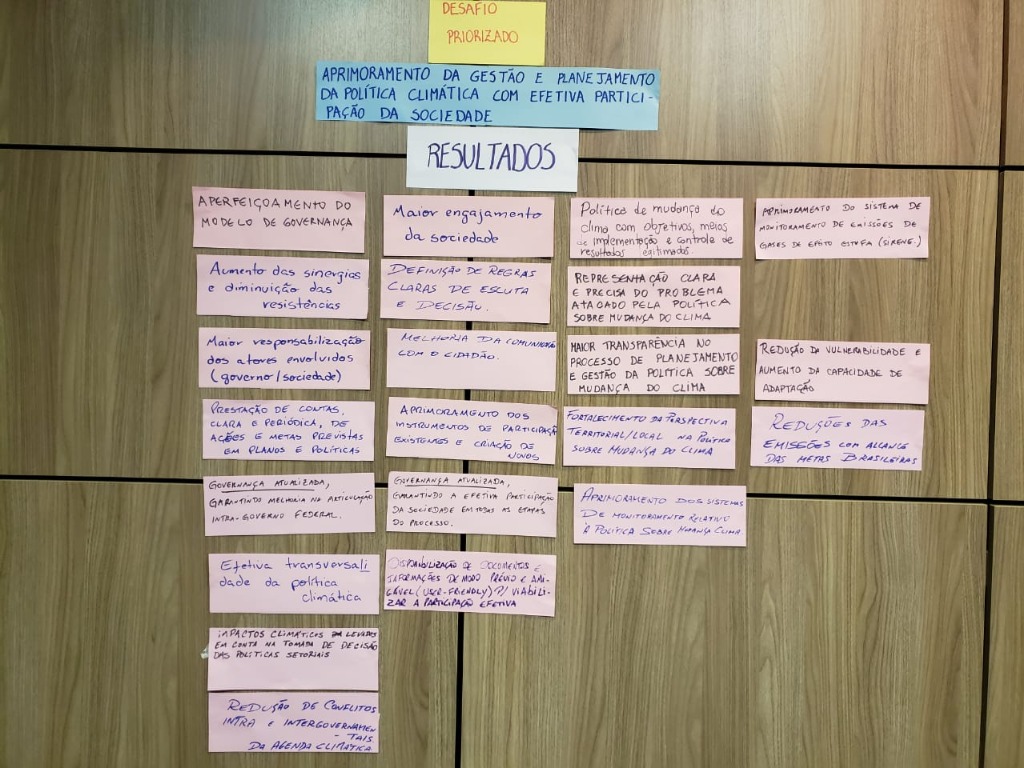 DESAFIO
PRIORIZADO
APRIMORAMENTO DA GESTÃO E PLANEJAMENTO
DA POLÍTICA CLIMÁTICA COM EFETIVA PARTICI-
PAÇÃO DA SOCIEDADE
RESULTADOS
APERFEIÇOAMENTO DO
MODELO DE GOVERNANÇA
Aumento das sinergias
e diminuição das
resistências
Maior responsabilização
dos atores envolvidos
(governo/sociedade)
PRESTAÇÃO DE CONTAS,
CLARA E PERIÓDICA, DE
AÇÕES E METAS PREVISTAS
EM PLANOS E POLÍTICAS
GOVERNANÇA ATUALIZADA,
GARANTINDO MELHORIA NA ARTICULAÇÃO
INTRA-GOVERNO FEDERAL.
Efetiva transversali
dade da política
climática
IMPACTOS CLIMÁTICOS LEVADOS
EM CONTA NA TOMADA DE DECISÃO
DAS POLÍTICAS SETORIAIS
REDUÇÃO DE CONFLITOS
INTRA E INTERGOVERNAMEN
- TAIS
DA AGENDA CLIMÁTICA
Maior engajamento
da sociedade
DEFINIÇÃO DE REGRAS
CLARAS DE ESCUTA
E DECISÃO.
MELHORIA DA COMUNICAÇÃO
COM O CIDADÃO.
APRIMORAMENTO DOS
INSTRUMENTOS DE PARTICIPAÇÃO
EXISTENTES E CRIAÇÃO DE
NOVOS
GOVERNANÇA ATUALIZADA,
GARANTINDO A EFETIVA PARTICIPAÇÃO
DA SOCIEDADE EM TODAS AS ETAPAS
DO PROCESSO.
DISPONIBILIZAÇÃO DE DOCUMENTOS E
INFORMAÇÕES DE MODO PRÉVIO E AMI-
GÁVEL (USER-FRIENDLY) P/ VIABILI-
ZAR A PARTICIPAÇÃO EFETIVA
Política de mudança do
clima com objetivos, meios
de implementação e controle de
resultados legitimados.
REPRESENTAÇÃO CLARA
E PRECISA DO PROBLEMA
ATACADO PELA POLÍTICA
SOBRE MUDANÇA DO CLIMA
MAIOR TRANSPARÊNCIA NO
PROCESSO DE PLANEJAMENTO
E GESTÃO DA POLÍTICA SOBRE
MUDANÇA DO CLIMA
FORTALECIMENTO DA PERSPECTIVA
TERRITORIAL/LOCAL NA POLÍTICA
SOBRE MUDANÇA DO CLIMA
APRIMORAMENTO DOS SISTEMAS
DE MONITORAMENTO RELATIVO
À POLÍTICA SOBRE MUDANÇA CLIMA
APRIMORAMENTO DO SISTEMA DE
MONITORAMENTO DE EMISSÕES DE
GASES DE EFEITO ESTUFA (SIRENE.)
REDUÇÃO DA VULNERABILIDADE E
AUMENTO DA CAPACIDADE DE
ADAPTAÇÃO
REDUÇÕES DAS
EMISSÕES COM ALCANCE
DAS METAS BRASILEIRAS